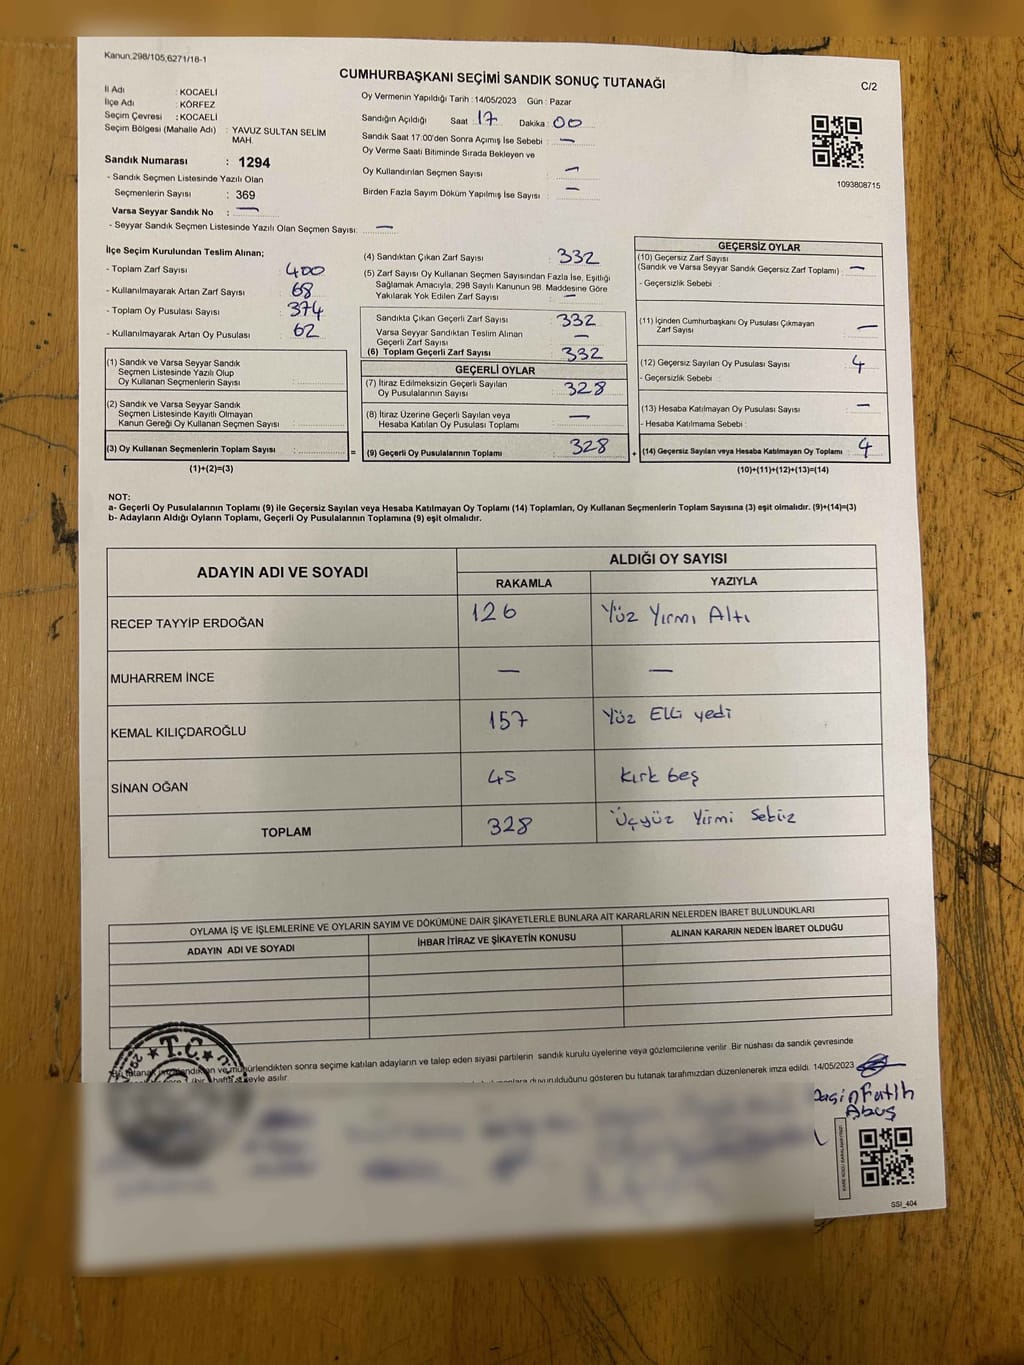 Kanun,298/105,6271/18-1
CUMHURBAŞKANI SEÇİMİ SANDIK SONUÇ TUTANAĞI
C/2
İl Adı : KOCAELİ
İlçe Adı : KÖRFEZ
Seçim Çevresi : KOCAELİ
Seçim Bölgesi (Mahalle Adı) : YAVUZ SULTAN SELİM
MAH.
Sandık Numarası : 1294
- Sandık Seçmen Listesinde Yazılı Olan
Seçmenlerin Sayısı : 369
Varsa Seyyar Sandık No : —
- Seyyar Sandık Seçmen Listesinde Yazılı Olan Seçmen Sayısı: —
Oy Vermenin Yapıldığı Tarih :14/05/2023 Gün : Pazar
Sandığın Açıldığı Saat : 17 Dakika : 00
Sandık Saat 17:00'den Sonra Açımış İse Sebebi : —
Oy Verme Saati Bitiminde Sırada Bekleyen ve
Oy Kullandırılan Seçmen Sayısı : —
Birden Fazla Sayım Döküm Yapılmış İse Sayısı : —
1093808715
İlçe Seçim Kurulundan Teslim Alınan;
- Toplam Zarf Sayısı : 400
- Kullanılmayarak Artan Zarf Sayısı : 68
- Toplam Oy Pusulası Sayısı : 374
- Kullanılmayarak Artan Oy Pusulası : 62
(1) Sandık ve Varsa Seyyar Sandık
Seçmen Listesinde Yazılı Olup
Oy Kullanan Seçmenlerin Sayısı :
(2) Sandık ve Varsa Seyyar Sandık
Seçmen Listesinde Kayıtlı Olmayan
Kanun Gereği Oy Kullanan Seçmen Sayısı :
(3) Oy Kullanan Seçmenlerin Toplam Sayısı :
(1)+(2)=(3)
(4) Sandıktan Çıkan Zarf Sayısı : 332
(5) Zarf Sayısı Oy Kullanan Seçmen Sayısından Fazla İse, Eşitliği
Sağlamak Amacıyla, 298 Sayılı Kanunun 98. Maddesine Göre
Yakılarak Yok Edilen Zarf Sayısı : —
Sandıkta Çıkan Geçerli Zarf Sayısı : 332
Varsa Seyyar Sandıktan Teslim Alınan
Geçerli Zarf Sayısı : —
(6) Toplam Geçerli Zarf Sayısı : 332
GEÇERLİ OYLAR
(7) İtiraz Edilmeksizin Geçerli Sayılan
Oy Pusulalarının Sayısı : 328
(8) İtiraz Üzerine Geçerli Sayılan veya
Hesaba Katılan Oy Pusulası Toplamı : —
= (9) Geçerli Oy Pusulalarının Toplamı : 328
GEÇERSİZ OYLAR
(10) Geçersiz Zarf Sayısı
(Sandık ve Varsa Seyyar Sandık Geçersiz Zarf Toplamı) : —
- Geçersizlik Sebebi :
(11) İçinden Cumhurbaşkanı Oy Pusulası Çıkmayan
Zarf Sayısı : —
(12) Geçersiz Sayılan Oy Pusulası Sayısı : 4
- Geçersizlik Sebebi :
(13) Hesaba Katılmayan Oy Pusulası Sayısı : —
- Hesaba Katılmama Sebebi :
+ (14) Geçersiz Sayılan veya Hesaba Katılmayan Oy Toplamı : 4
(10)+(11)+(12)+(13)=(14)
NOT:
a- Geçerli Oy Pusulalarının Toplamı (9) ile Geçersiz Sayılan veya Hesaba Katılmayan Oy Toplamı (14) Toplamları, Oy Kullanan Seçmenlerin Toplam Sayısına (3) eşit olmalıdır. (9)+(14)=(3)
b- Adayların Aldığı Oyların Toplamı, Geçerli Oy Pusulalarının Toplamına (9) eşit olmalıdır.
ADAYIN ADI VE SOYADI ALDIĞI OY SAYISI
RAKAMLA YAZIYLA
RECEP TAYYİP ERDOĞAN 126 Yüz Yirmi Altı
MUHARREM İNCE — —
KEMAL KILIÇDAROĞLU 157 Yüz Elli yedi
SİNAN OĞAN 45 Kırk beş
TOPLAM 328 Üçyüz Yirmi Sekiz
OYLAMA İŞ VE İŞLEMLERİNE VE OYLARIN SAYIM VE DÖKÜMÜNE DAİR ŞİKAYETLERLE BUNLARA AİT KARARLARIN NELERDEN İBARET BULUNDUKLARI
ADAYIN ADI VE SOYADI İHBAR İTİRAZ VE ŞİKAYETİN KONUSU ALINAN KARARIN NEDEN İBARET OLDUĞU
T.C.
Bu tutanak imzalandıktan ve mühürlendikten sonra seçime katılan adayların ve talep eden siyasi partilerin sandık kurulu üyelerine veya gözlemcilerine verilir. Bir nüshası da sandık çevresinde
asılır. duyurulduğunu gösteren bu tutanak tarafımızdan düzenlenerek imza edildi. 14/05/2023
Fatih
SSİ_404